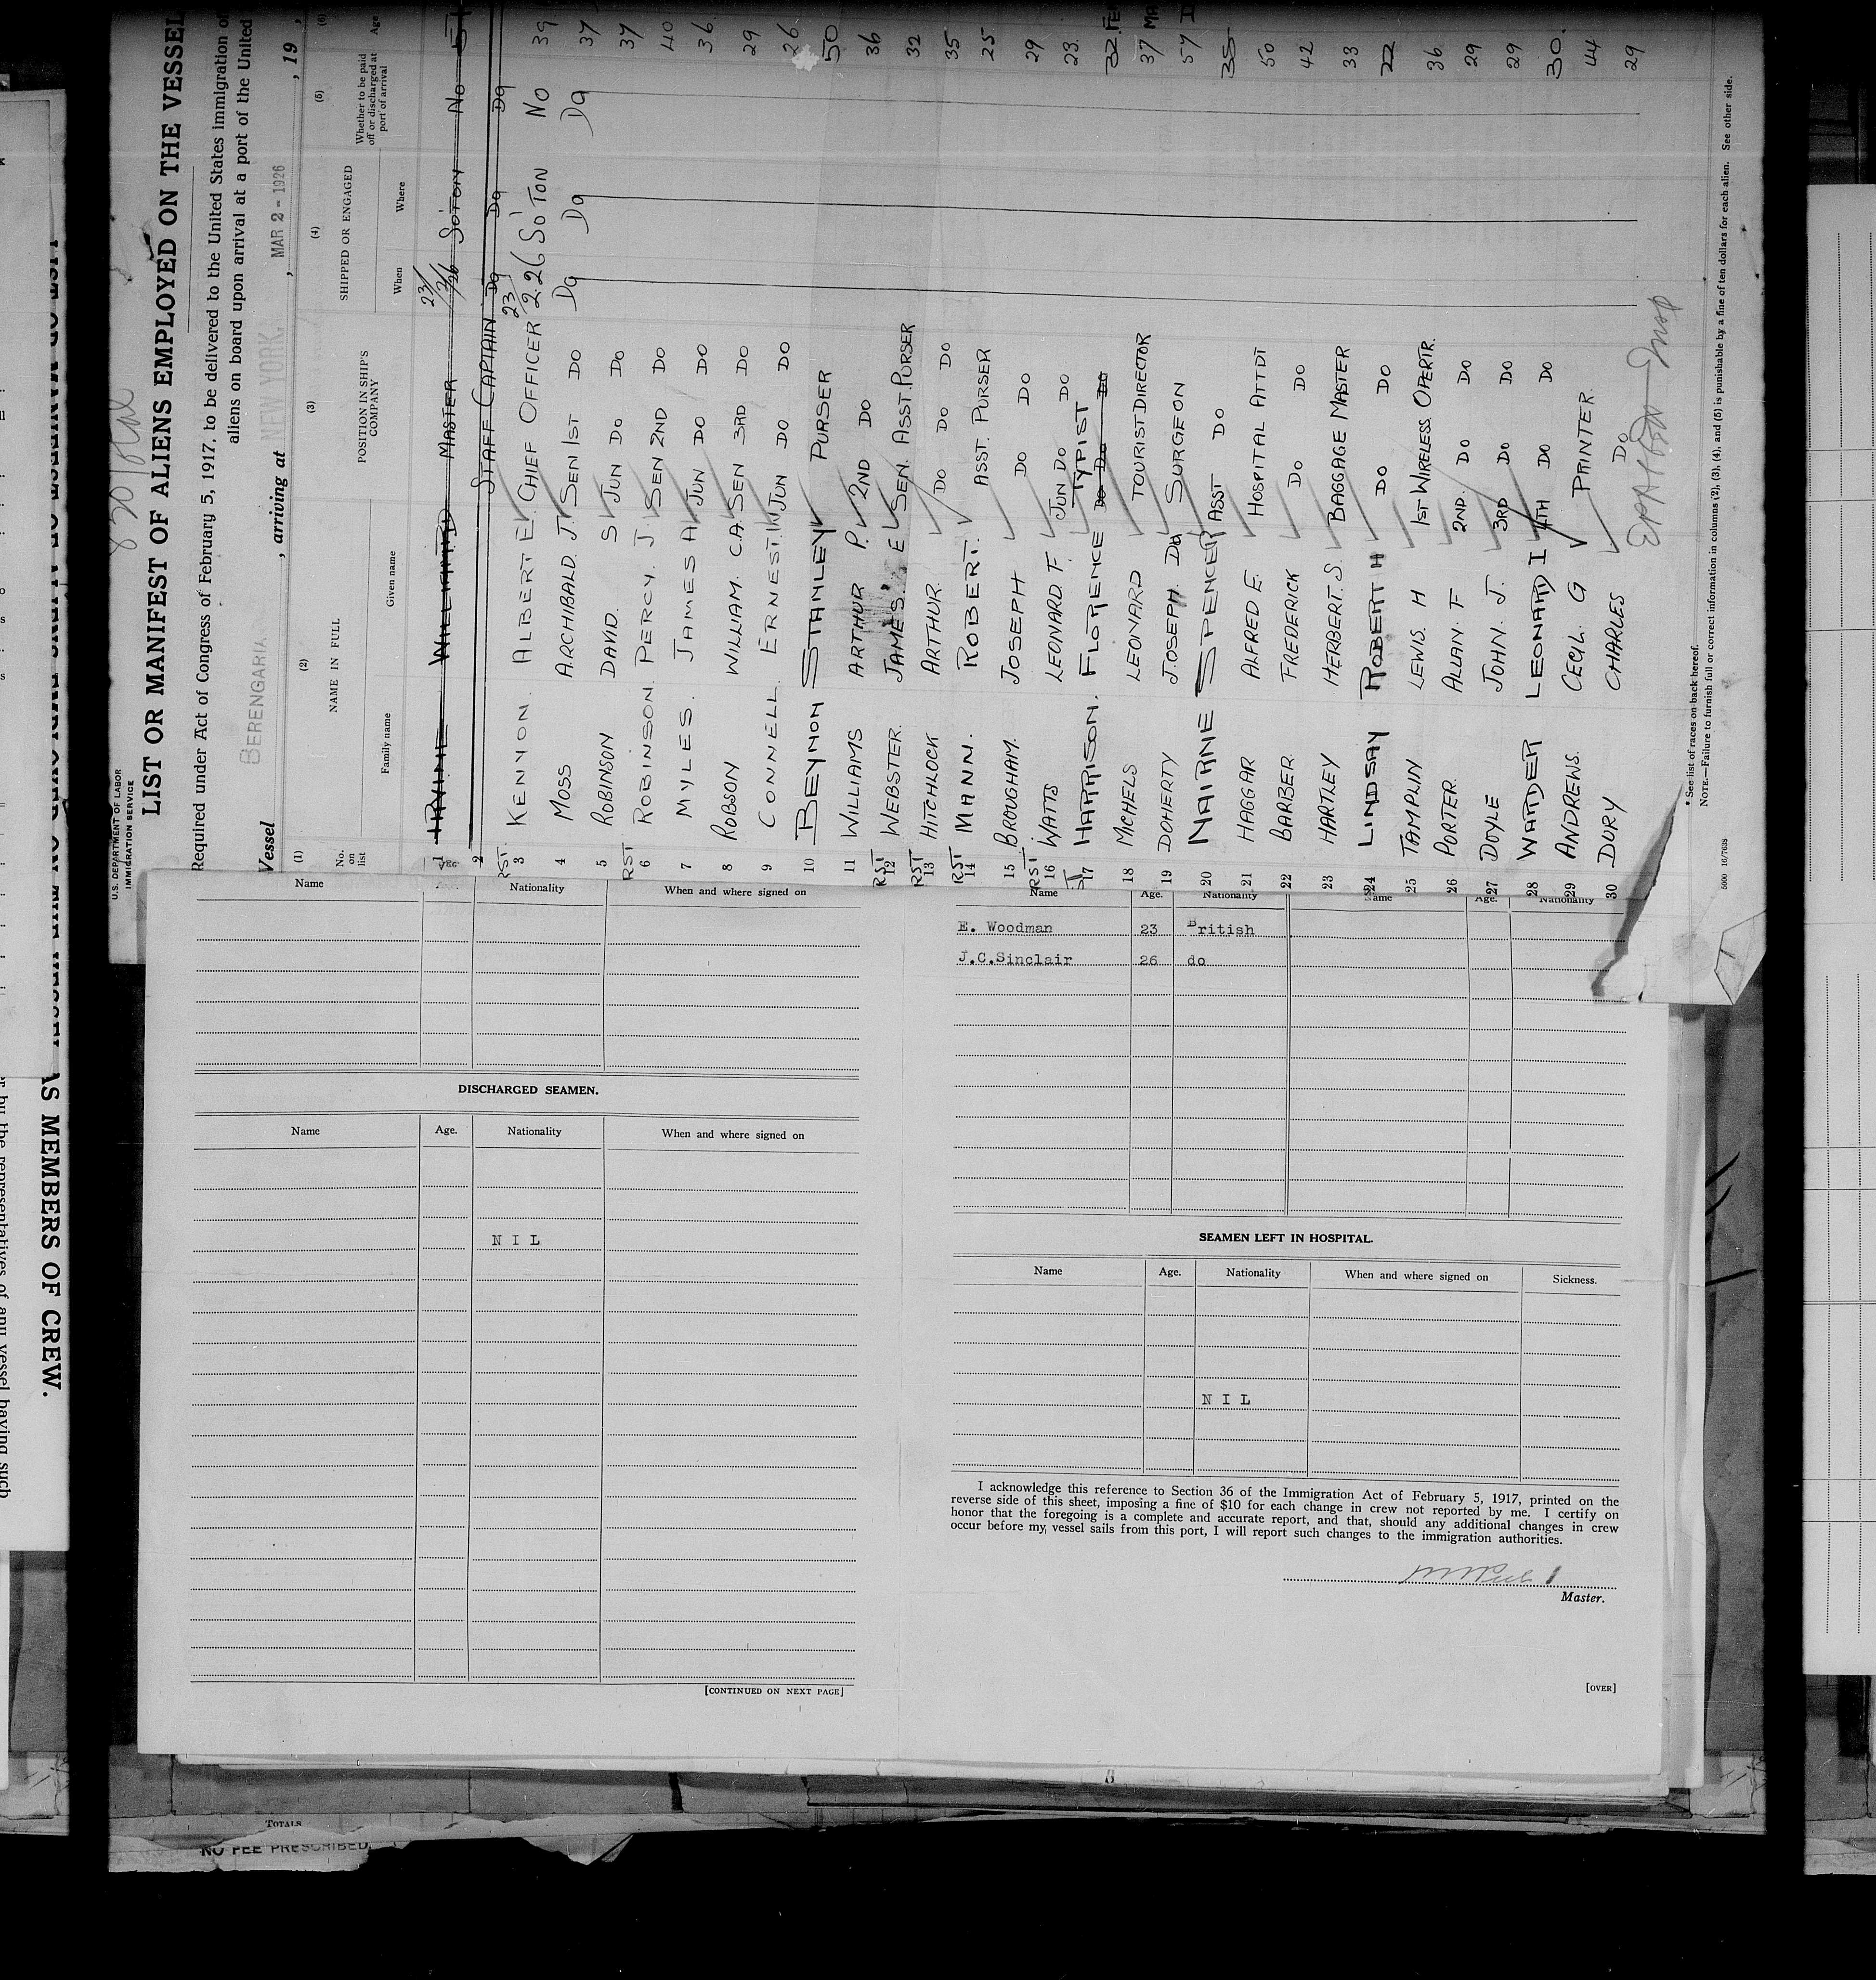 U.S. DEPARTMENT OF LABOR
IMMIGRATION SERVICE
LIST OR MANIFEST OF ALIENS EMPLOYED ON THE VESSEL
Required under Act of Congress of February 5, 1917, to be delivered to the United States immigration
aliens on board upon arrival at a port of the United
Vessel BERENGARIA, arriving at NEW YORK, MAR 2 - 1926, 19
(1) (2) (3) (4) (5) (6)
No. on list NAME IN FULL POSITION IN SHIP'S COMPANY SHIPPED OR ENGAGED Whether to be paid off or discharged at port of arrival Age
Family name Given name When Where
1 IRVINE MASTER SO'TON NO
2 STAFF CAPTAIN DO DO DO
3 KENYON. ALBERT E. CHIEF OFFICER 23/2.26 SO'TON NO 39
4 MOSS ARCHIBALD. J SEN 1ST DO DO DO DO 37
5 ROBINSON DAVID. S JUN DO DO 37
6 ROBINSON. PERCY. J SEN 2ND DO 40
7 MYLES. JAMES A JUN DO DO 36
8 ROBSON WILLIAM. C.A. SEN 3RD DO 29
9 CONNELL. ERNEST. JUN DO DO 26
10 BEYNON STANLEY PURSER 50
11 WILLIAMS ARTHUR P. 2ND DO 36
RST 12 WEBSTER. JAMES. E SEN. ASST. PURSER 32
RST 13 HITCHLOCK ARTHUR. DO DO DO 35
RST 14 MANN. ROBERT. ASST. PURSER 25
15 BROUGHAM. JOSEPH DO DO 29
RST 16 WATTS LEONARD. F. JUN DO DO 23.
17 HARRISON. FLORENCE TYPIST DO DO DO 32
18 MICHELS LEONARD TOURIST DIRECTOR 37
19 DOHERTY JOSEPH. SURGEON 57
20 NAIRNE SPENCER ASST DO 35
21 HAGGAR ALFRED E. HOSPITAL ATTDT 50
22 BARBER. FREDERICK DO DO 42
23 HARTLEY HERBERT. S. BAGGAGE MASTER 33
24 LINDSAY ROBERT H DO DO 22
25 TAMPLIN LEWIS. H 1ST WIRELESS OPERTR. 36
26 PORTER. ALLAN. F 2ND. DO DO 29
27 DOYLE JOHN. J. 3RD DO DO 29
28 WARDER LEONARD I 4TH DO DO 30.
29 ANDREWS. CECIL. G PRINTER. 44
30 DURY CHARLES DO 29
* See list of races on back hereof.
NOTE.—Failure to furnish full or correct information in columns (2), (3), (4), and (5) is punishable by a fine of ten dollars for each alien. See other side.
Name Nationality When and where signed on
DISCHARGED SEAMEN.
Name Age. Nationality When and where signed on
NIL
[CONTINUED ON NEXT PAGE]
Name Age. Nationality Name Age. Nationality
E. Woodman 23 British
J.C.Sinclair 26 do
SEAMEN LEFT IN HOSPITAL.
Name Age. Nationality When and where signed on Sickness.
NIL
I acknowledge this reference to Section 36 of the Immigration Act of February 5, 1917, printed on the
reverse side of this sheet, imposing a fine of $10 for each change in crew not reported by me. I certify on
honor that the foregoing is a complete and accurate report, and that, should any additional changes in crew
occur before my vessel sails from this port, I will report such changes to the immigration authorities.
Master.
[OVER]
TOTALS
NO FEE PRESCRIBED
AS MEMBERS OF CREW.
by the representatives of any vessel having such